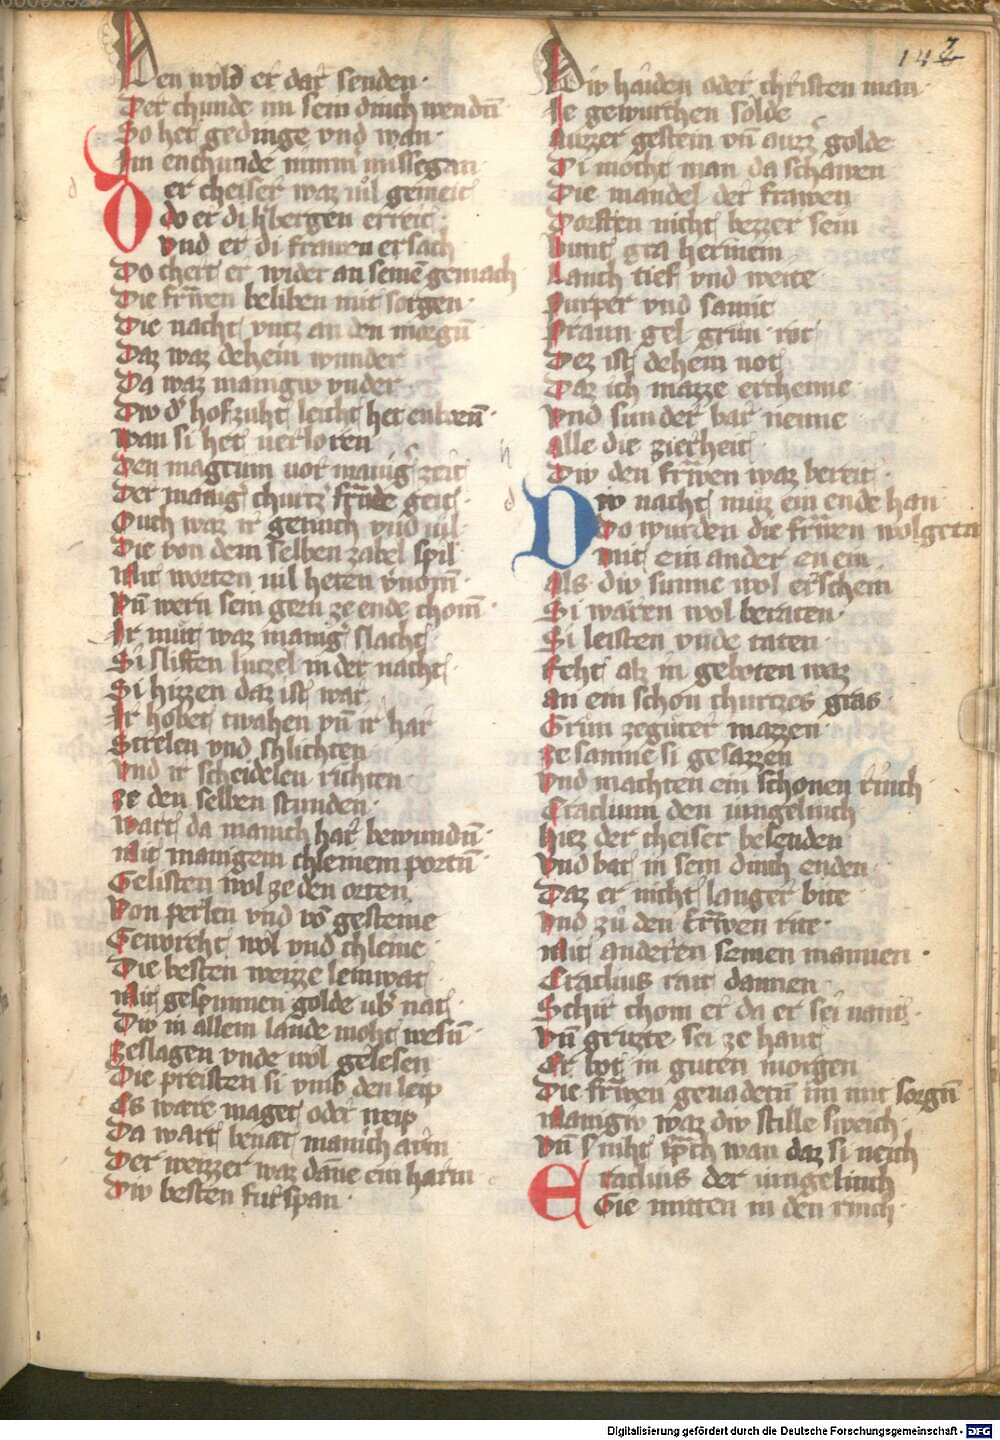 142
Den wold er dar senden·
Der chunde im sein dinch wendn̄·
So het gedinge vnd wan·
Im enchunde nimm missegan
Der cheiser waz uil gemeit
do er di h̓bergen erreit·
vnd er di frawen ersach
Do chert er wider an seinē gemach
Die fra̅wen beliben mit sorgen·
Die nacht vntz an den morgn̄
Daz waz dehein wunder
Da waz manigiv vnder
Div d̓ hofzuht leicht het enbern̄·
wan si het uerloren
Den magtum uor manig̓ zeit
Der manig̓ churtz̓ frode geit·
Ouch waz ir genuch vnd uil
Die von dem selben zabel spil
Mit worten uil heten v̓nom̄·
Vn̄ wern sein gern ze ende chom̄·
Ir mut waz manig̓ slacht
Si sliffen lutzel in der nacht·
Si hizzen daz ist war
Ir hobet twahen vn̄ ir har
Strelen vnd shlichten
Vnd ir scheidelen richten
ze den selben stunden·
Wart da manich har bewundn̄·
Mit manigem chleinem portn̄·
Gelisten wol ze den orten
Von perlen vnd vo̓ gesteine
Geworcht wol vnd chleine·
Die besten weizze leinwat
Mit gespunnen golde ub̓ nat
Div in allem lande moht wesn̄·
Zeslagen vnde wol gelesen
Die preisten si vmb den leip
Es ware maget oder weip
Da wart benat manich arm
Der weizzer waz dāne ein harm
Div besten furspan·
Div haiden oder christen man·
Ie gewurchen solde
Auzzer gestein vn̄ auzz̓ golde
Di mocht man da schawen
Die mandel der frawen
Dorften nicht bezzer sein
Bunt gra hermein
Lanch tief vnd weite
Purper vnd samit
Praun gel grun rot
Dez ist dehein not
Daz ich mazze erchenne·
Vnd sunder bar nenne
Alle die zierheit
Div den fra̅wen waz bereit·
Div nacht muz ein ende han
Do wurden die fra̅wen wolgetan
mit ein ander en ein
Als div sunne wol erschein
Si waren wol beraten·
Si leisten vnde taten
Reht alz in geboten waz
an ein schon churtzes gras
Grun zeguter mazzen
Ze samne si gesazzen
Vnd machten ein schonen rinch
Eraclium den iungelinch
Hiez der cheiser besenden
Vnd bat in sein dinch enden
Daz er nicht langer bite
Vnd zů den fra̅wen rite·
Mit anderen seinen mannen·
Eraclius rait dannen
Schir chom er da er sei uant·
Vn̄ gruzte sei ze hant
Er bot in guten morgen
Die fra̅wen genadetn̄ im mit sorgn̄
Manigiv waz div stille sweich
Vn̄ s niht sprach wan daz si neich
Eraclius der iungelinch
Gie mitten in den rinch
Digitalisierung gefördert durch die Deutsche Forschungsgemeinschaft - DFG